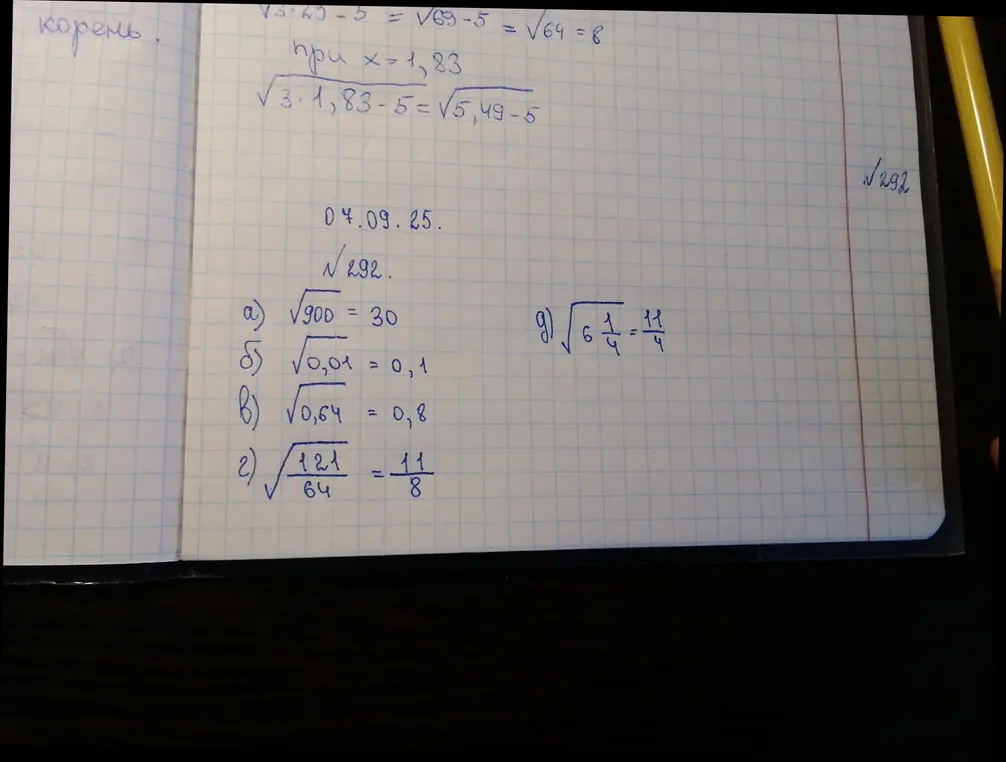 корень.
√3·23-5 = √69-5 = √64 = 8
при x=1,83
√3·1,83-5 = √5,49-5
№292
07.09.25.
№292.
а) √900 = 30
б) √0,01 = 0,1
в) √0,64 = 0,8
г) √121/64 = 11/8
д) √6 1/4 = 11/4